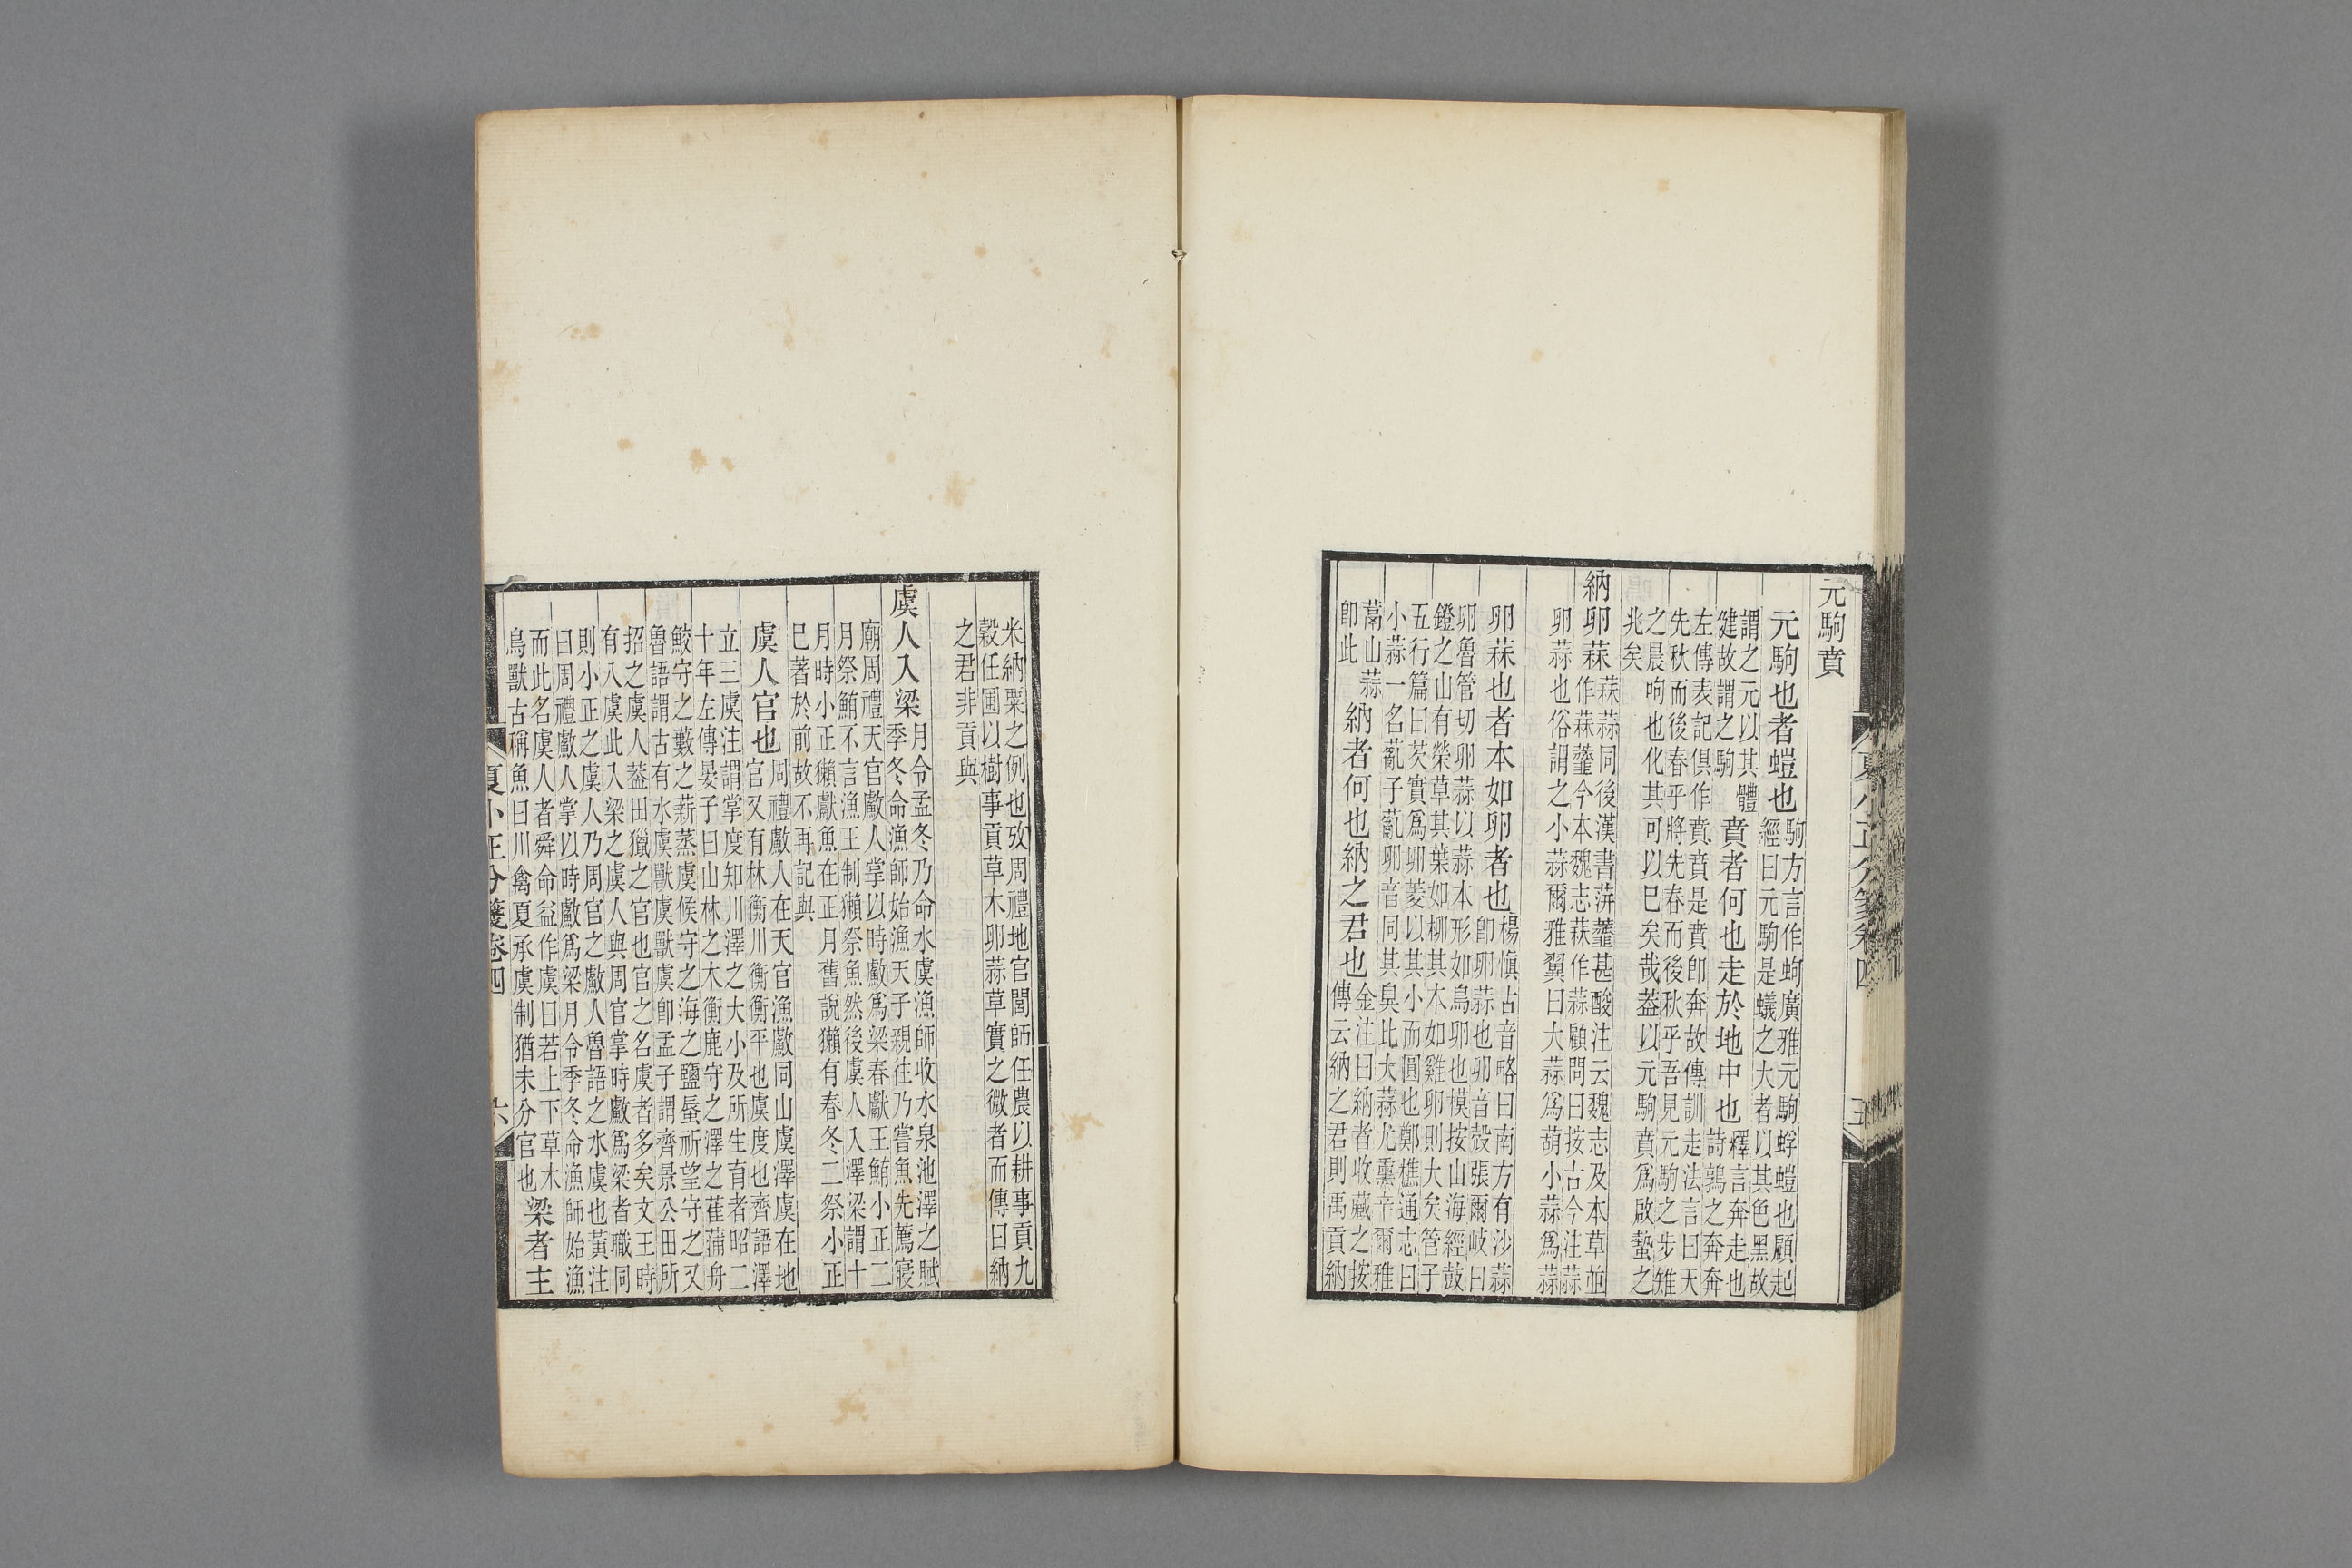 元駒賁
元駒也者螘也
駒方言作蚼廣雅元駒蜉螘也顧起
經曰元駒是蟻之大者以其色黑故
謂之元以其體
健故謂之駒
賁者何也走於地中也
釋言奔走也
詩鶉之奔奔
左傳表記俱作賁賁是賁卽奔故傳訓走法言曰天
先秋而後春乎將先春而後秋乎吾見元駒之步雉
之晨呴也化其可以巳矣哉葢以元駒賁爲啟蟄之
兆矣
納卵蒜
蒜蒜同後漢書蓱虀甚酸注云魏志及本草並
作蒜虀今本魏志蒜作蒜顧問曰按古今注蒜
卵蒜也俗謂之小蒜爾雅翼曰大蒜爲葫小蒜爲蒜
卵蒜也者本如卵者也
楊愼古音略曰南方有沙蒜
卽卵蒜也卵音殼張爾岐曰
卵魯管切卵蒜以蒜本形如鳥卵也模按山海經鼓
鐙之山有榮草其葉如柳其本如雞卵則大矣管子
五行篇曰芡實爲卵菱以其小而圓也鄭樵通志曰
小蒜一名蘺子蘺卵音同其臭比大蒜尤熏辛爾雅
蒚山蒜
卽此
納者何也納之君也
金注曰納者收藏之按
傳云納之君則禹貢納
米納粟之例也攷周禮地官閭師任農以耕事貢九
穀任圃以樹事貢草木卵蒜草實之微者而傳曰納
之君非貢與
虞人入梁
月令孟冬乃命水虞漁師收水泉池澤之賦
季冬命漁師始漁天子親往乃嘗魚先薦寢
廟周禮天官䱷人掌以時䱷爲梁春獻王鮪小正二
月祭鮪不言漁王制獺祭魚然後虞人入澤梁謂十
月時小正獺獻魚在正月舊說獺有春冬二祭小正
巳著於前故不再記與
虞人官也
周禮䱷人在天官漁䱷同山虞澤虞在地
官又有林衡川衡衡平也虞度也齊語澤
立三虞注謂掌度知川澤之大小及所生育者昭二
十年左傳晏子曰山林之木衡鹿守之澤之萑蒲舟
鮫守之藪之薪蒸虞候守之海之鹽蜃祈望守之又
魯語謂古有水虞獸虞獸虞卽孟子謂齊景公田所
招之虞人葢田獵之官也官之名虞者多矣文王時
有八虞此入梁之虞人與周官掌時䱷爲梁者職同
則小正之虞人乃周官之䱷人魯語之水虞也黃注
曰周禮䱷人掌以時䱷爲梁月令季冬命漁師始漁
而此名虞人者舜命益作虞曰若上下草木
鳥獸古稱魚曰川禽夏承虞制猶未分官也
梁者主
夏小正分箋卷四
六